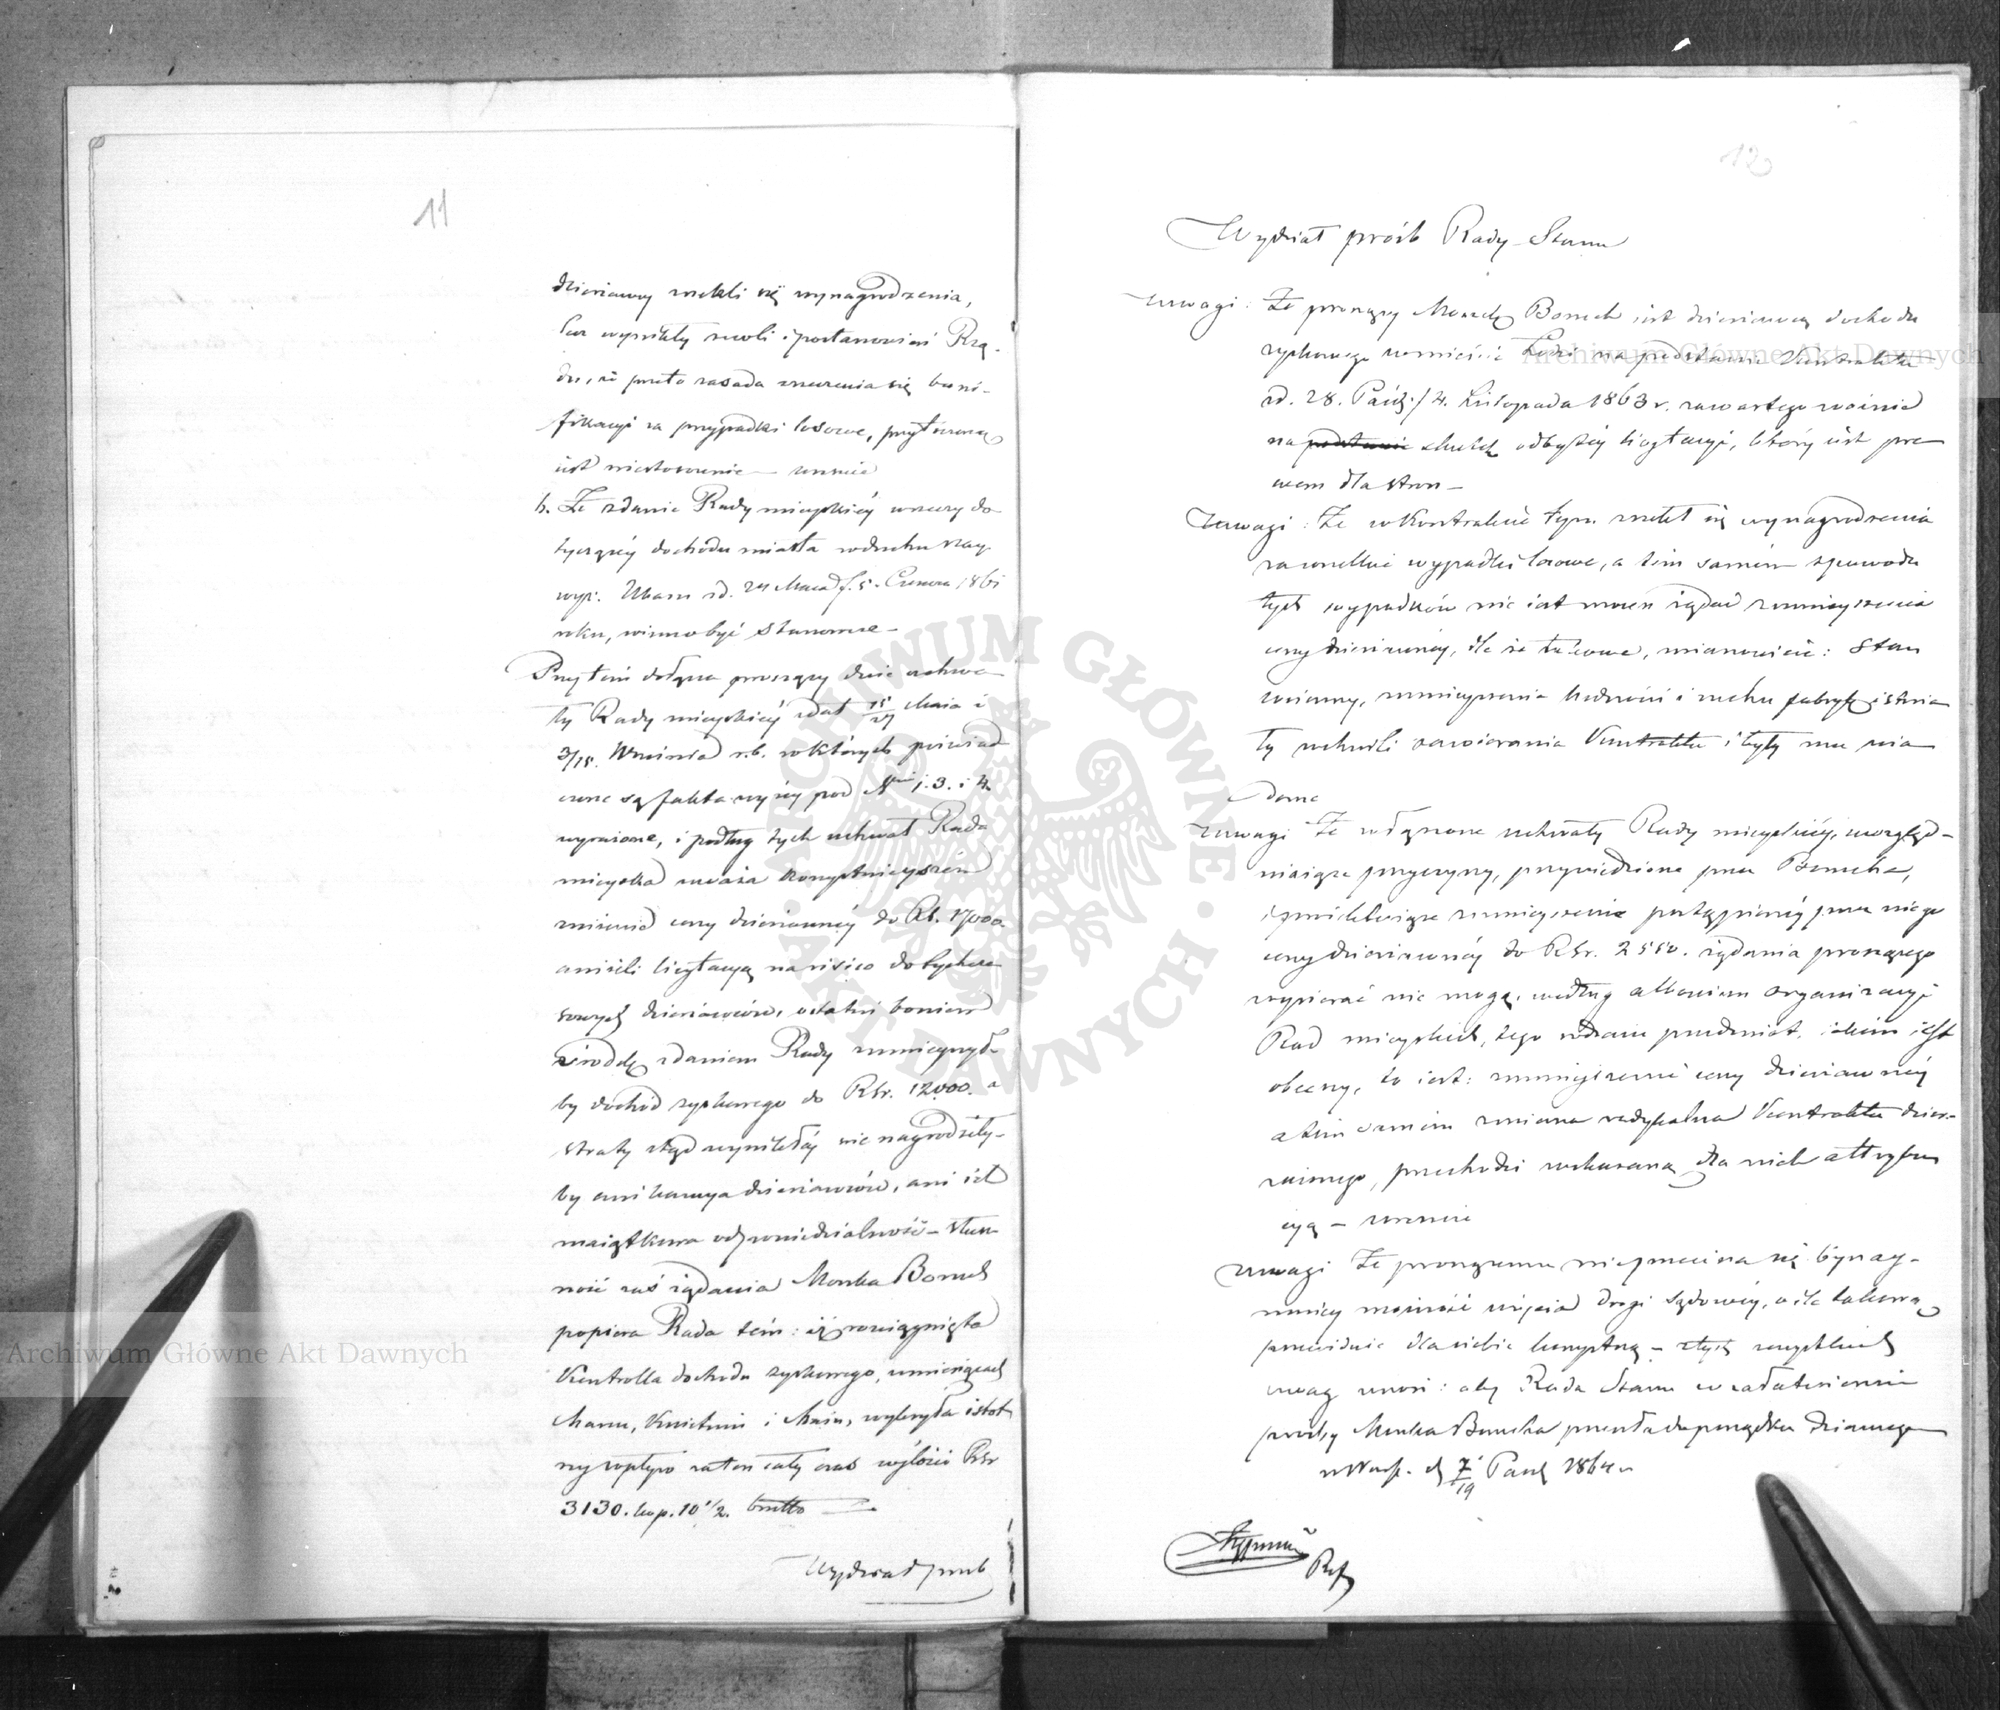 11
dzierżawy zrzekli się wynagrodzenia,
lecz wynikły z woli i postanowień Rzą-
du, że przeto zasada zrzeczenia się boni-
fikacyi za przypadki losowe, przytoczoną
jest niestosownie — wreszcie
4. Że zdanie Rady miejskiéj w rzeczy do
tyczącéj dochodu miasta w duchu Naj
wyż. Ukazu z d. 24 Maja/5. Czerwca 1861
roku, winno być stanowcze —
Przytém dołącza proszący dwie uchwa
ły Rady miejskiéj z dat 15/27 Maja i
3/15. Września r. b. w których poświad
czone są fakta wyżéj pod Nrami 1. 3. i 4.
wyrażone, i podług tych uchwał Rada
miejska uważa korzystniejszém
zniżenie ceny dzierżawnéj do Rs. 17000.
aniżeli licytacyą na risico dotychcza
sowych dzierżawców, ostatni bowiem
środek zdaniem Rady zmniejszył
by dochód szynkowego do Rsr. 12000. a
straty ztąd wynikłéj nie nagrodziły-
by ani kaucya dzierżawców, ani ich
majątkowa odpowiedzialność — słusz
ność zaś żądania Moszka Boruch
popiera Rada tém: iż rozciągnięta
Kontrolla dochodu szynkowego, w miesiącach
Marcu, Kwietniu i Maju, wykryła istot
ny wpływ za ten cały czas w ilości Rsr
3130. kop. 10 1/2. brutto —
Wydział prośb
12
Wydział próśb Rady Stanu
Uwagi: Że proszący Moszek Boruch jest dzierżawcą dochodu
szynkowego w mieście Łodzi na podstawie Kontraktu
z d. 28. Paźdz./4. Listopada 1863 r. zawartego
na podstawie skutek odbytéj licytacyi, który jest pra
wem dla stron —
Uwagi: Że w Kontrakcie tym zrzekł się wynagrodzenia
za wszelkie wypadki losowe, a tém samém z powodu
tych wypadków nie jest mocen żądać zmniejszenia
ceny dzierżawnéj, ile że takowe, mianowicie: Stan
wojenny, zmniejszenie ludności i ruchu fabryk istnia
ły w chwili zawierania Kontraktu i były mu wia
dome
Uwagi Że załączone uchwały Rady miejskiéj, uwzględ-
niające przyczyny, przywiedzione przez Borucha,
zmniejszenie postąpionéj przez niego
ceny dzierżawnéj do Rsr. 2550. żądania proszącego
wspierać nie mogą, według albowiem organizacyi
Rad miejskich, tego rodzaju przedmiot, jakim jest
obecny, to jest: zmniejszenie ceny dzierżawnéj
a tém samém zmiana radykalna Kontraktu dzier-
żawnego, przechodzi wskazaną dla nich attrybu
cyą — wreszcie
Uwagi Że proszącemu nie przecina się bynaj-
mniej możność użycia drogi sądowéj, o ile takową
przewiduje dla siebie korzystną — z tych wszystkich
uwag wnosi: aby Rada Stanu w załatwieniu
prośby Moszka Borucha przeszła do porządku dziennego
w Warsz. d 7/19 Paźdz 1864 r
Ref
Archiwum Główne Akt Dawnych
Archiwum Główne Akt Dawnych
ARCHIWUM GŁÓWNE · AKT DAWNYCH ·